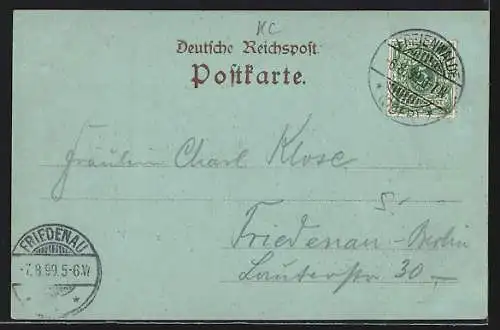 KC
Deutsche Reichspost
Postkarte.
FREIENWALDE
Fräulein Charl. Klose
Friedenau-Berlin
Lauterstr 30,-
FRIEDENAU
-7.8.99.5-6.N